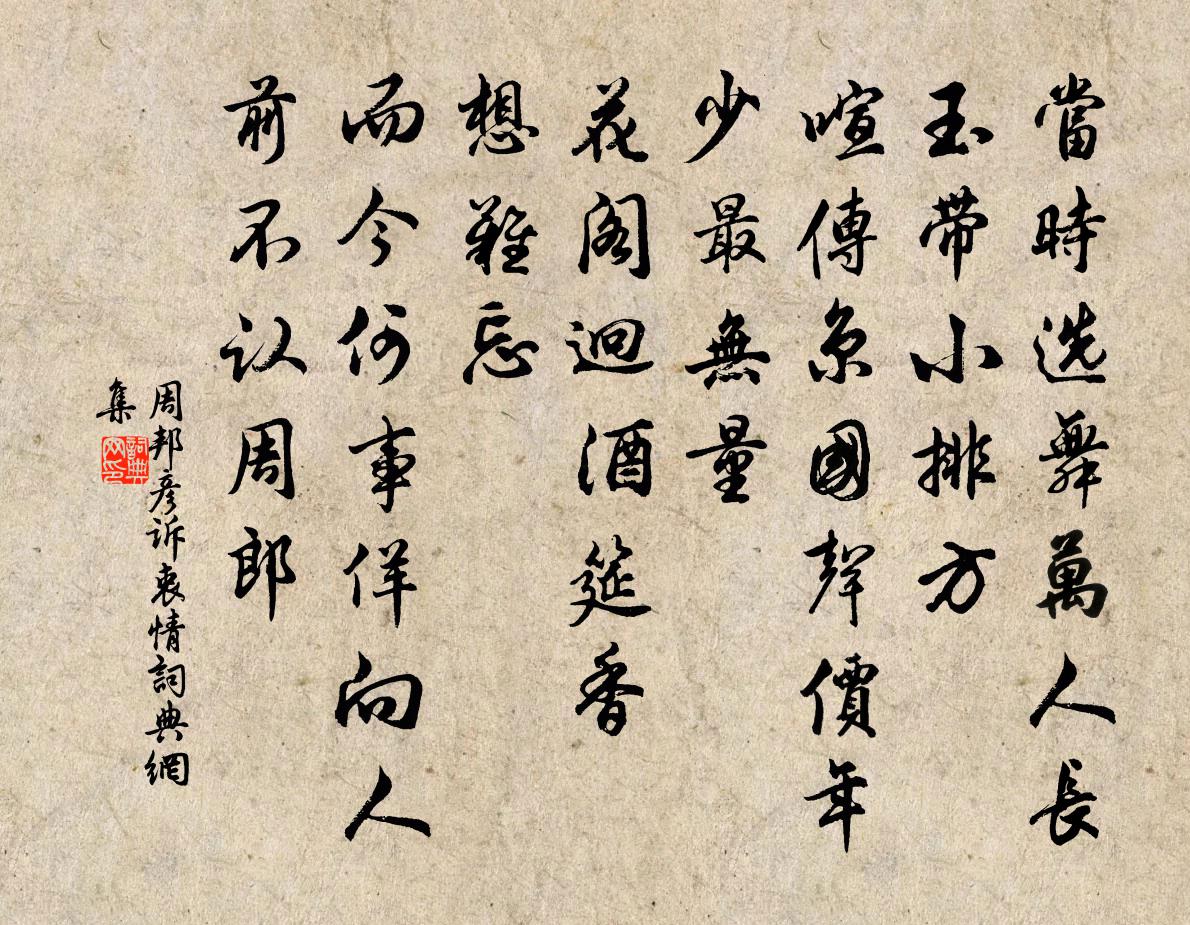 當時选舞萬人長
玉带小排方
喧傳京國聲價年
少最無量
花阁迥酒筵香
想難忘
而今何事佯向人
前不认周郎
周邦彦诉衷情詞典網
集
詞典
网印